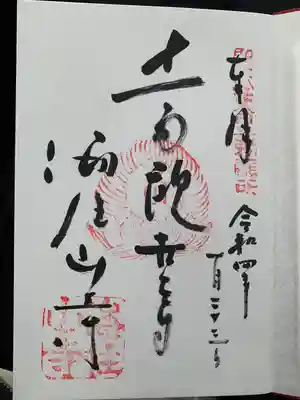 奉拝
令和四年
一月二十三日
十一面観世音
海住山寺